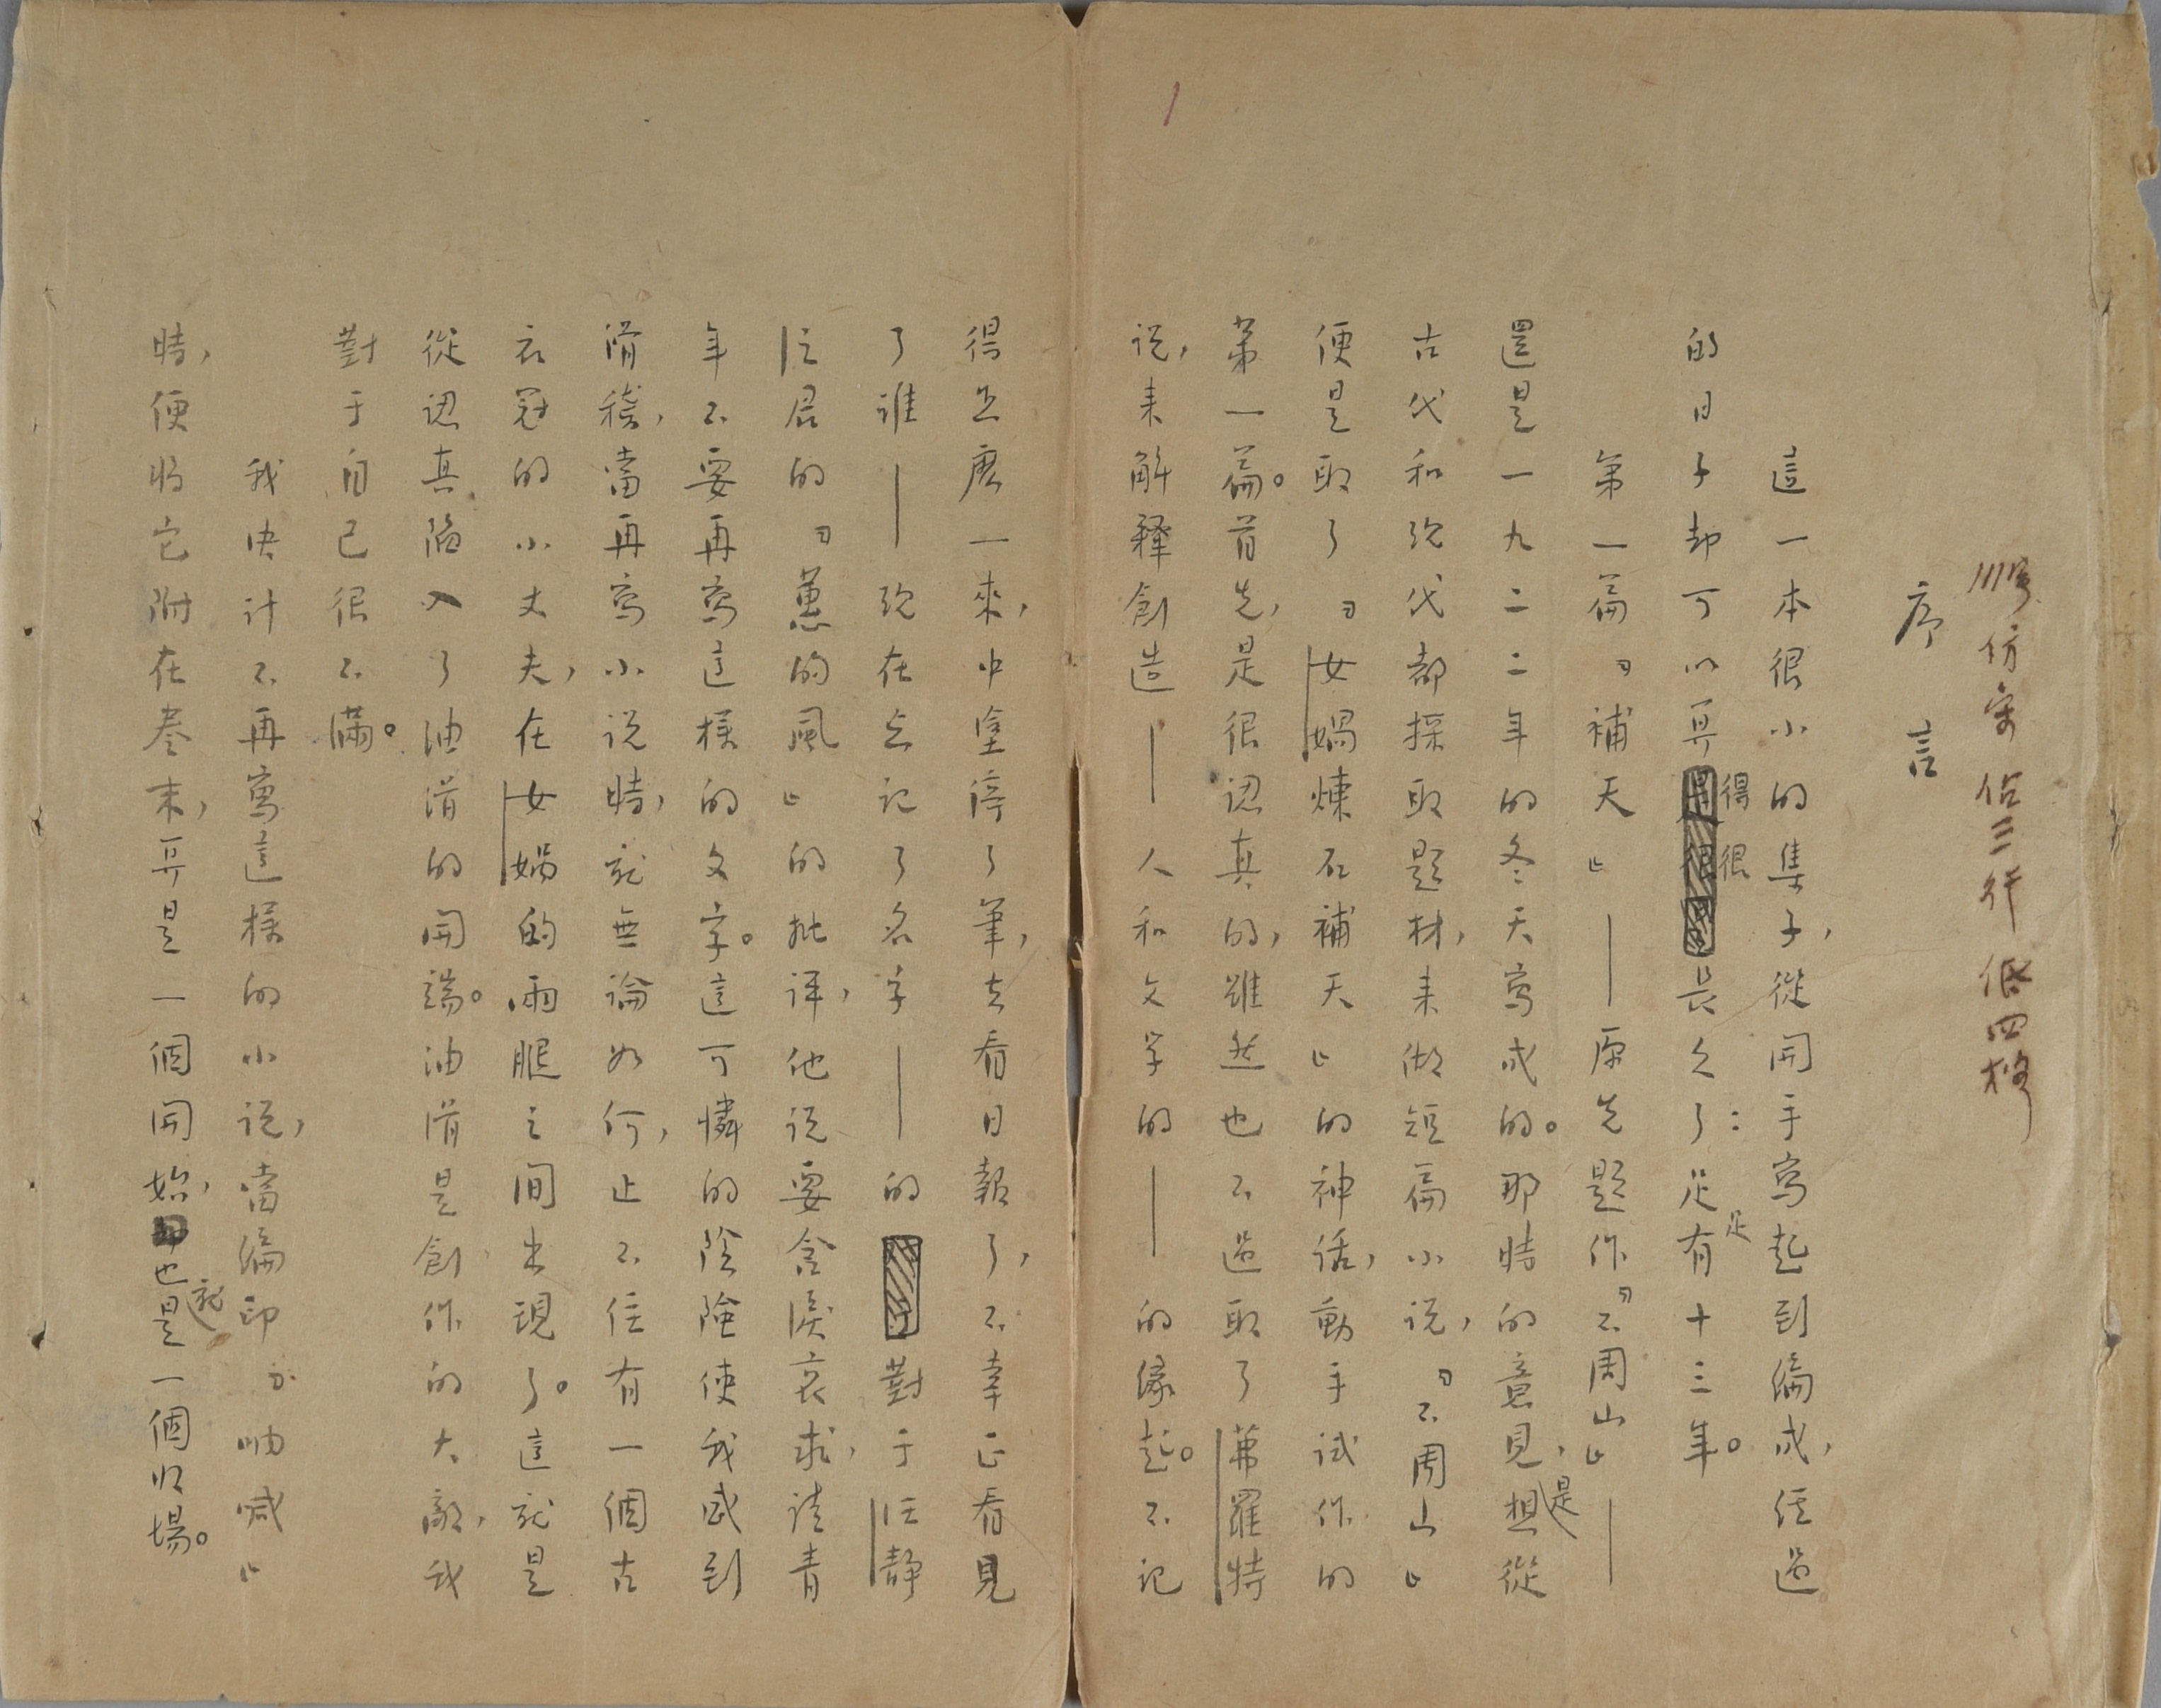 〣号仿宋 佔三行 低四格
序言
這一本很小的集子，從開手寫起到編成，經過
的日子却可以算得很長久了：足足有十三年。
第一篇『補天』——原先題作『不周山』——
還是一九二二年的冬天寫成的。那時的意見，是想從
古代和現代都採取題材，来做短篇小説，『不周山』
便是取了『女媧煉石補天』的神話，動手試作的
第一篇。首先，是很認真的，雖然也不過取了茀羅特
説，来解釋創造——人和文学的——的緣起。不記
得怎麽一來，中塗停了筆，去看日報了，不幸正看見
了誰——現在忘記了名字——的對于汪静
之君的『蕙的風』的批評，他説要含淚哀求，請青
年不要再寫這樣的文字。這可憐的陰險使我感到
滑稽，當再寫小説時，就無論如何，止不住有一個古
衣冠的小丈夫，在女媧的兩腿之間出現了。這就是
從認真陷入了油滑的開端。油滑是創作的大敵，我
對于自己很不滿。
我決計不再寫這樣的小説，當編印『吶喊』
時，便將它附在卷末，算是一個開始，也就是一個收場。